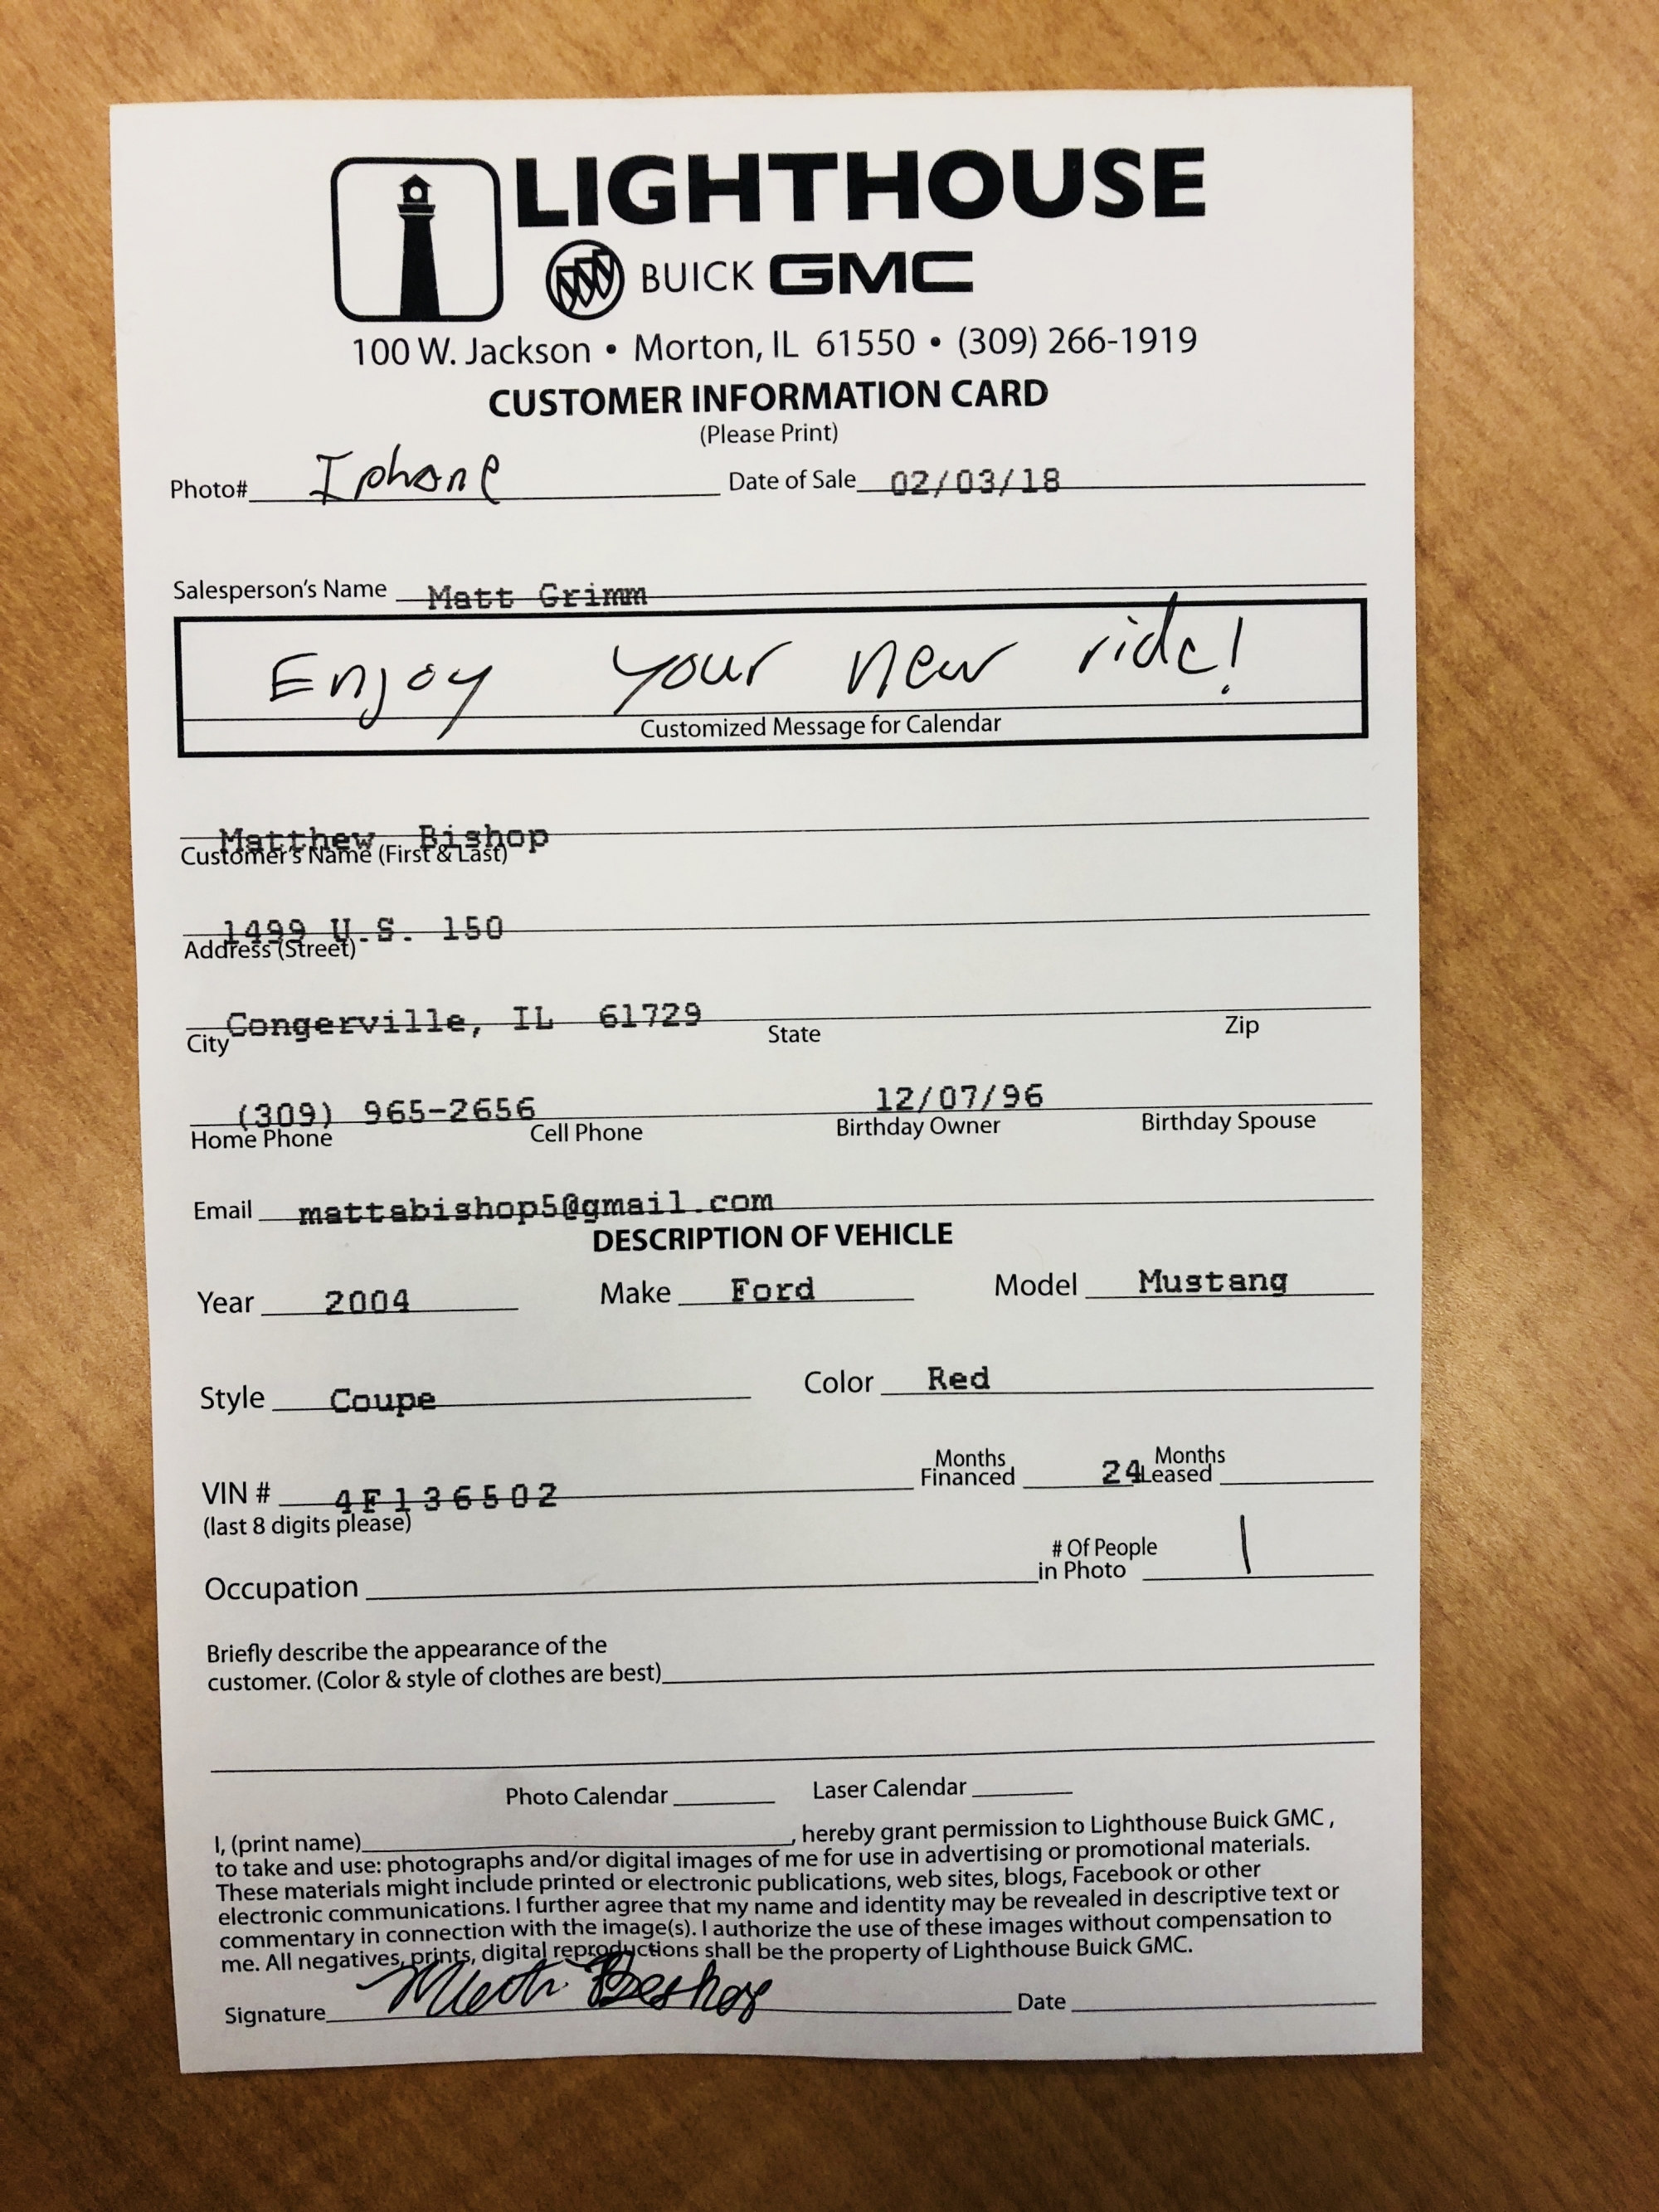 LIGHTHOUSE
BUICK GMC
100 W. Jackson • Morton, IL 61550 • (309) 266-1919
CUSTOMER INFORMATION CARD
(Please Print)
Photo# Iphone Date of Sale 02/03/18
Salesperson's Name Matt Grimm
Enjoy your new ride!
Customized Message for Calendar
Matthew Bishop
Customer's Name (First & Last)
1499 U.S. 150
Address (Street)
Congerville, IL 61729
City State Zip
(309) 965-2656 12/07/96
Home Phone Cell Phone Birthday Owner Birthday Spouse
Email mattabishop5@gmail.com
DESCRIPTION OF VEHICLE
Year 2004 Make Ford Model Mustang
Style Coupe Color Red
VIN # 4F136502 Months Financed 24 Months Leased
(last 8 digits please)
Occupation # Of People in Photo 1
Briefly describe the appearance of the
customer. (Color & style of clothes are best)
Photo Calendar Laser Calendar
I, (print name) , hereby grant permission to Lighthouse Buick GMC ,
to take and use: photographs and/or digital images of me for use in advertising or promotional materials.
These materials might include printed or electronic publications, web sites, blogs, Facebook or other
electronic communications. I further agree that my name and identity may be revealed in descriptive text or
commentary in connection with the image(s). I authorize the use of these images without compensation to
me. All negatives, prints, digital reproductions shall be the property of Lighthouse Buick GMC.
Signature Date